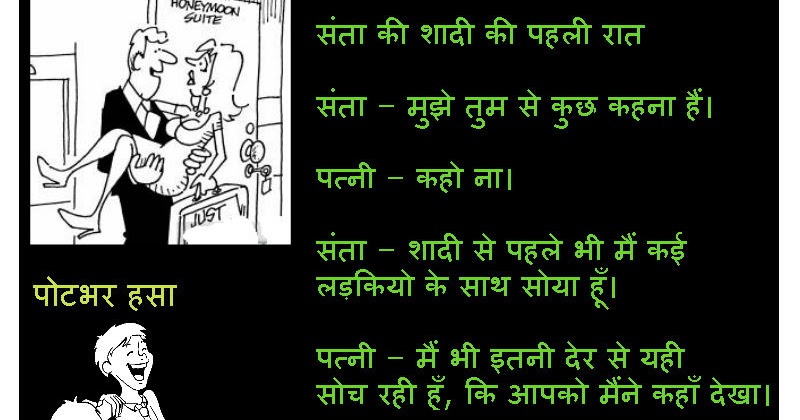 HONEYMOON
SUITE
JUST
पोटभर हसा
संता की शादी की पहली रात
संता – मुझे तुम से कुछ कहना हैं।
पत्नी – कहो ना।
संता – शादी से पहले भी मैं कई
लड़कियो के साथ सोया हूँ।
पत्नी – मैं भी इतनी देर से यही
सोच रही हूँ, कि आपको मैंने कहाँ देखा।